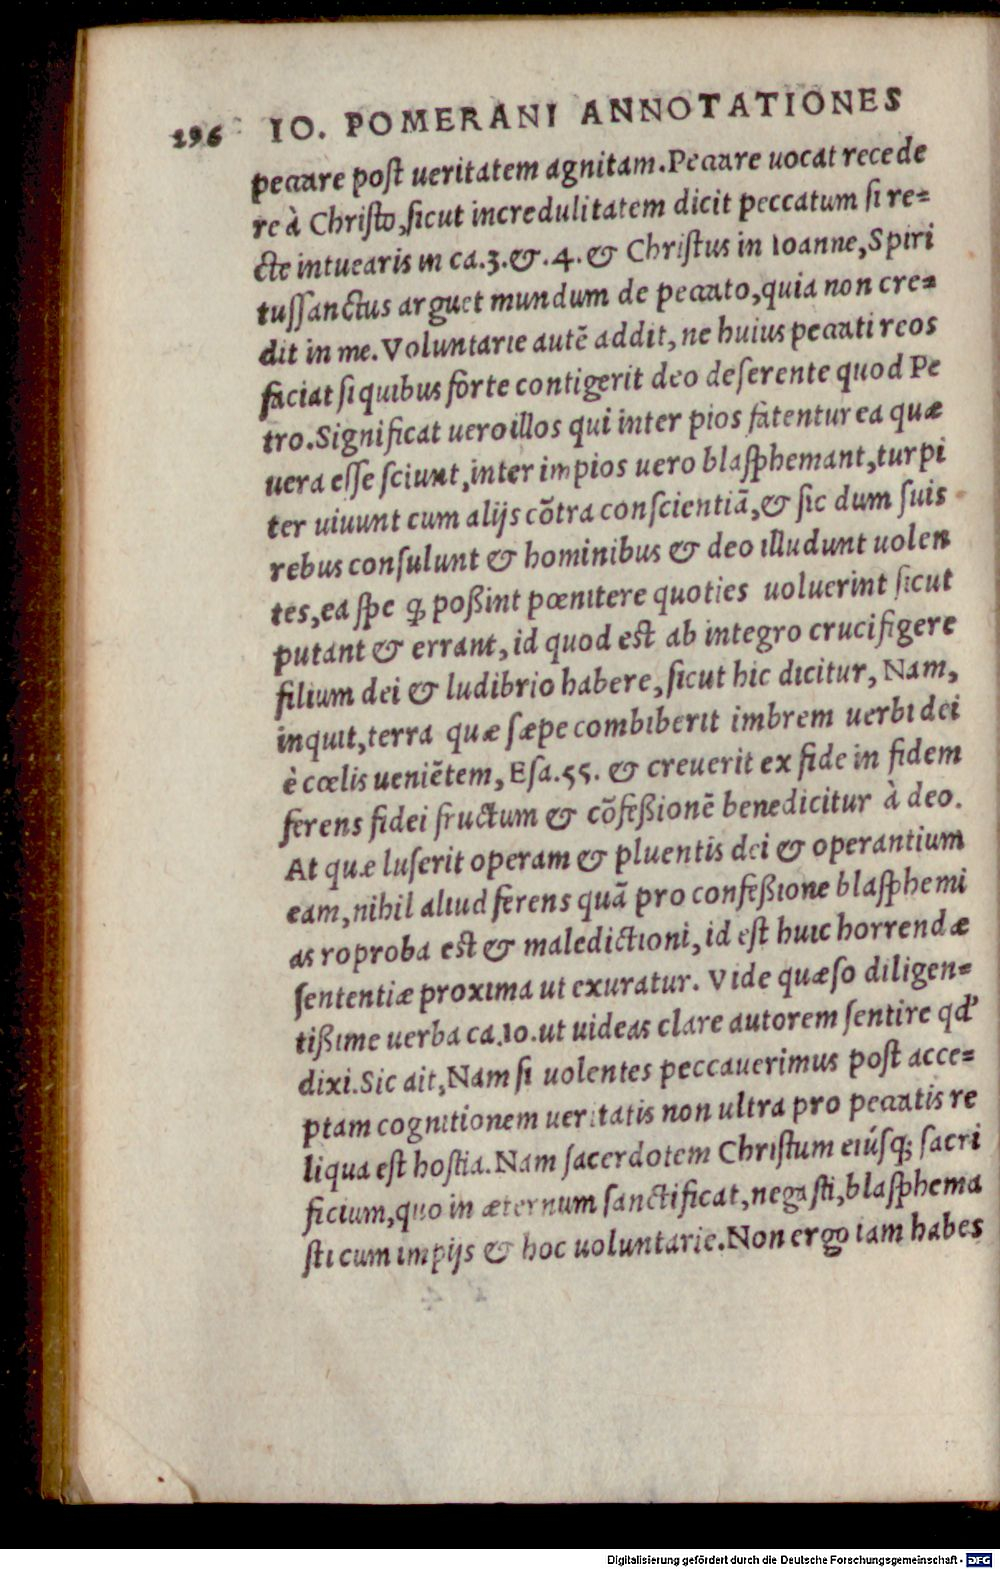 296 IO. POMERANI ANNOTATIONES
peccare poſt ueritatem agnitam. Peccare uocat recede
re à Chriſto, ſicut incredulitatem dicit peccatum ſi re=
cte intuearis in ca.3.&.4.& Chriſtus in Ioanne, Spiri
tuſſanctus arguet mundum de peccato, quia non cre=
dit in me. Voluntarie autē addit, ne huius peccati reos
faciat ſi quibus forte contigerit deo deſerente quod Pe
tro. Significat uero illos qui inter pios fatentur ea quæ
uera eſſe ſciunt, inter impios uero blaſphemant, turpi
ter uiuunt cum alijs cōtra conſcientiā, & ſic dum ſuis
rebus conſulunt & hominibus & deo illudunt uolen
tes, ea ſpe ꝙ poßint pœnitere quoties uoluerint ſicut
putant & errant, id quod est ab integro crucifigere
filium dei & ludibrio habere, ſicut hic dicitur, Nam,
inquit, terra quæ ſæpe combiberit imbrem uerbi dei
è cœlis ueniētem, Eſa.55. & creuerit ex fide in fidem
ferens fidei fructum & cōfeßionē benedicitur à deo.
At quæ luſerit operam & pluentis dei & operantium
eam, nihil aliud ferens quā pro confeßione blaſphemi
as roproba est & maledictioni, id eſt huic horrendæ
ſententiæ proxima ut exuratur. Vide quæſo diligen=
tißime uerba ca.10. ut uideas clare autorem ſentire qd'
dixi. Sic ait, Nam ſi uolentes peccauerimus poſt acce=
ptam cognitionem ueritatis non ultra pro peccatis re
liqua eſt hoſtia. Nam ſacerdotem Chriſtum eiúſq; ſacri
ficium, quo in æternum ſanctificat, negaſti, blaſphema
ſti cum impijs & hoc uoluntarie. Non ergo iam habes
Digitalisierung gefördert durch die Deutsche Forschungsgemeinschaft - DFG